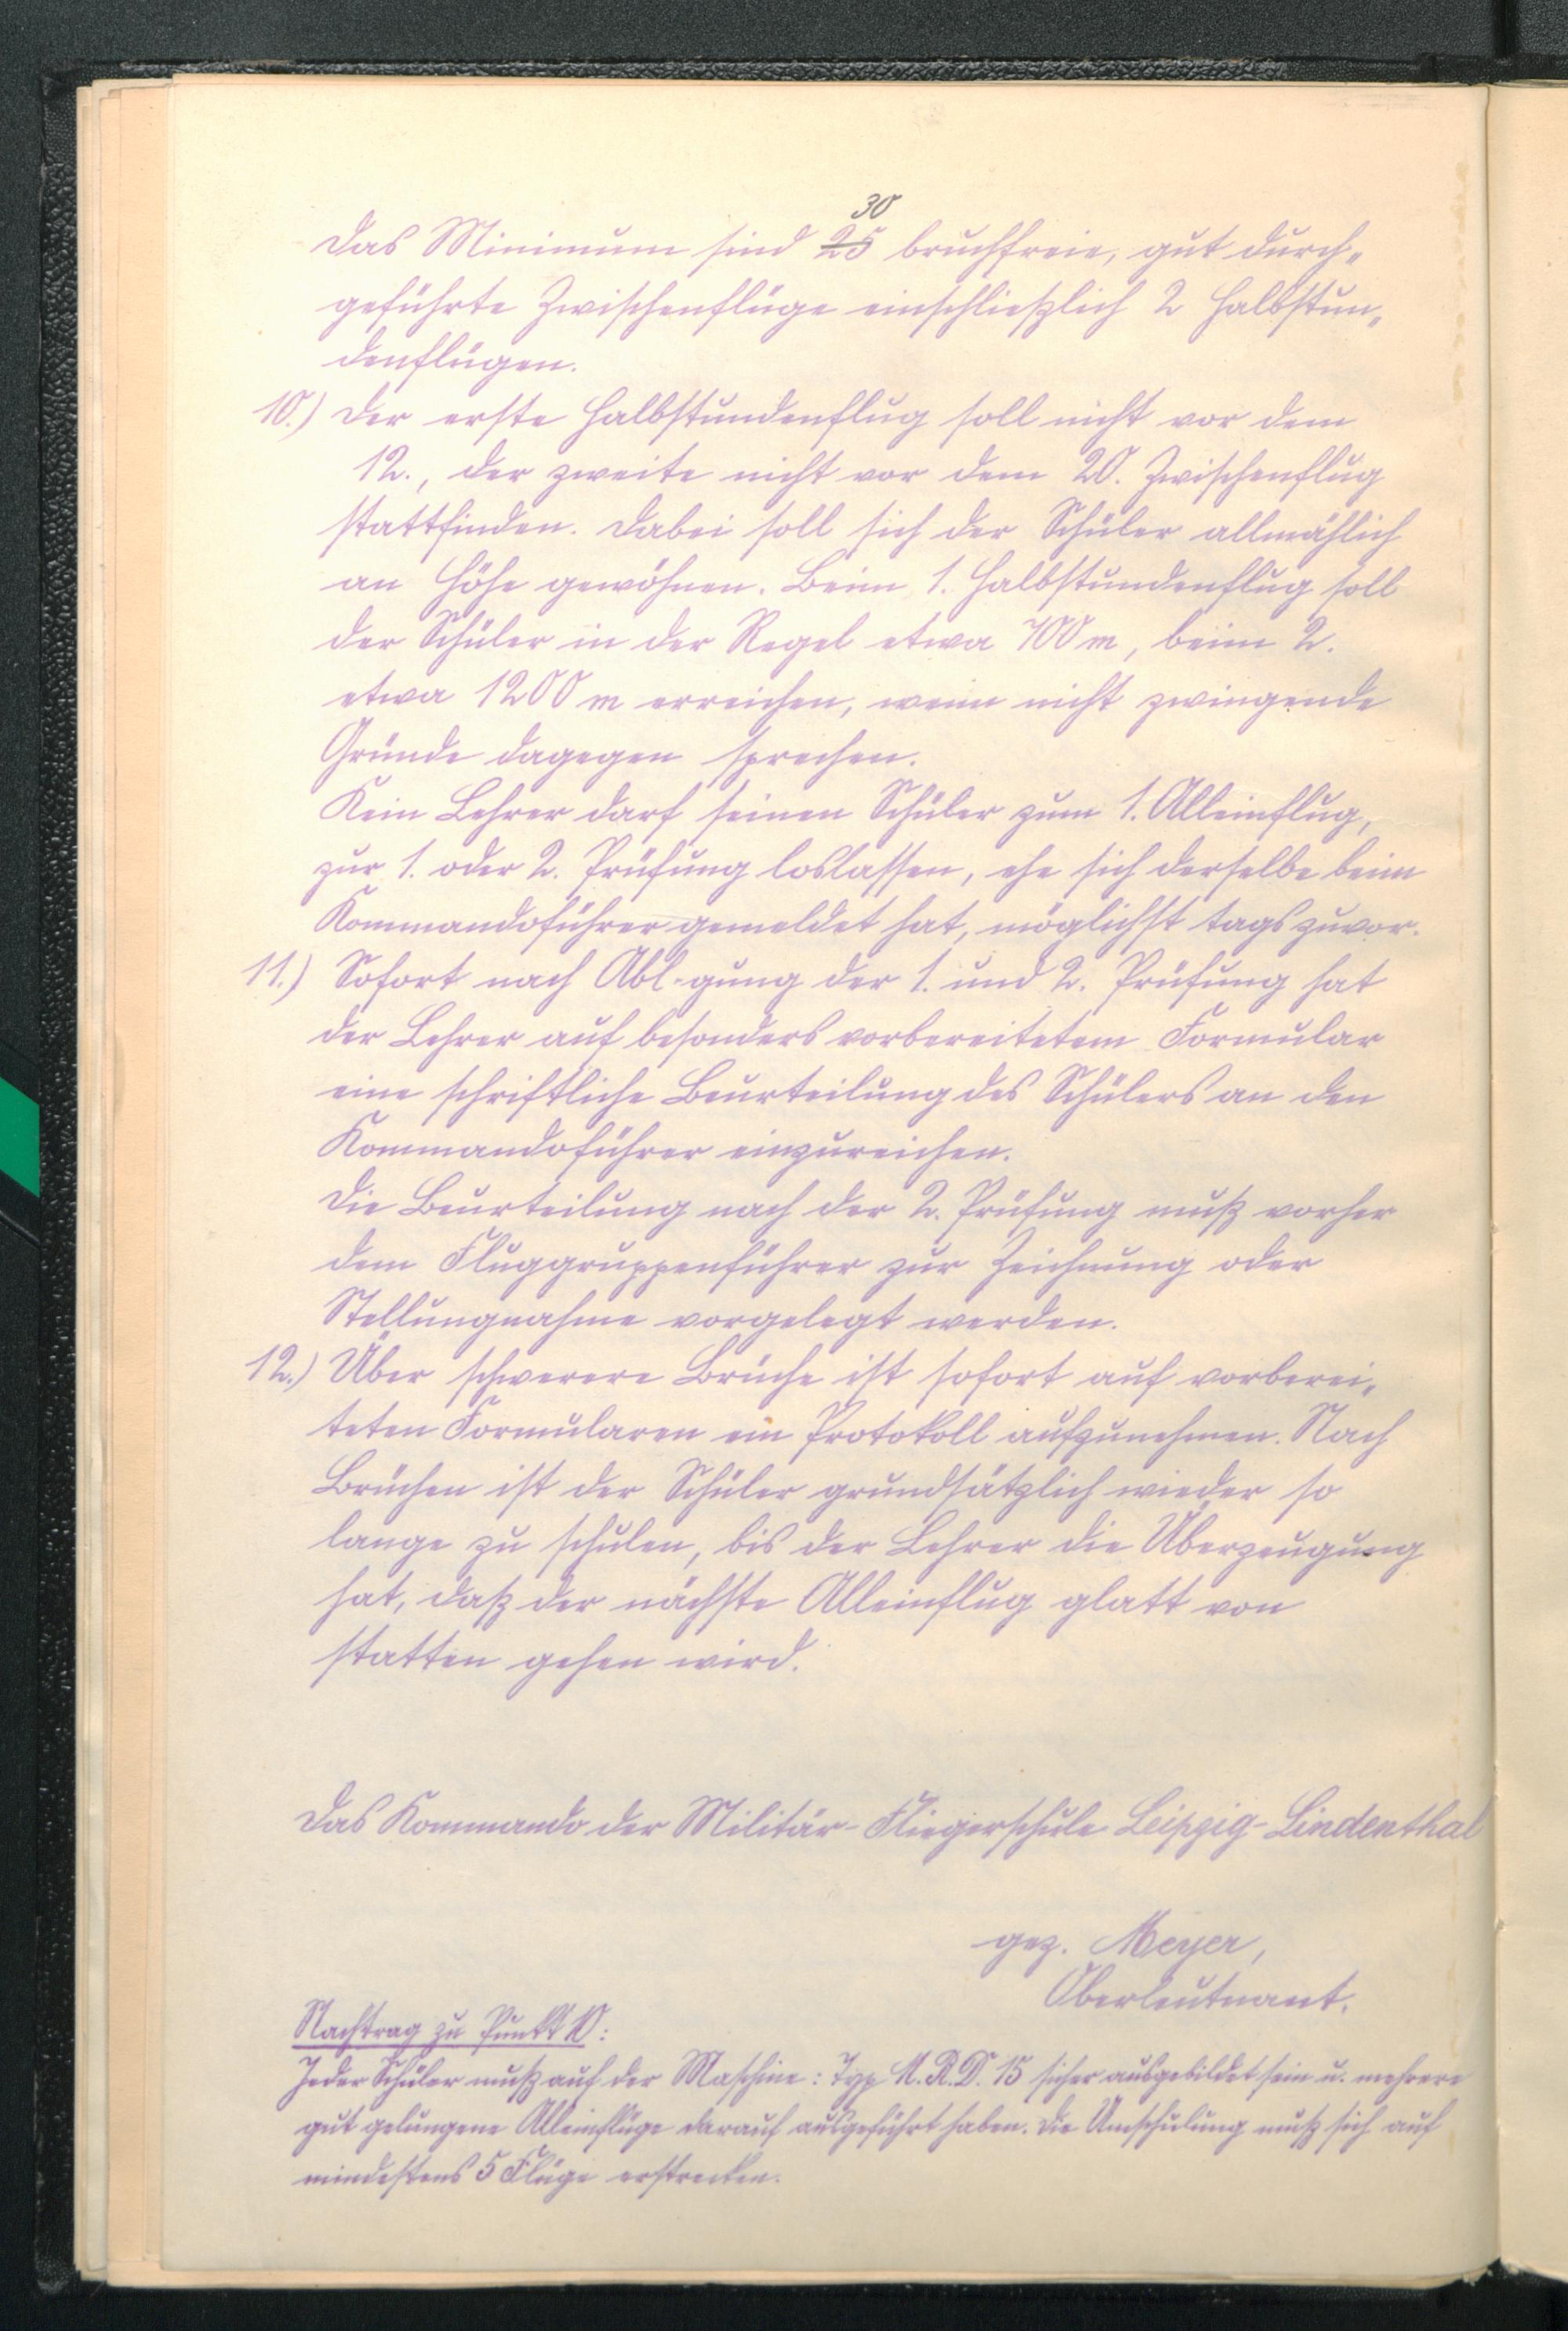 30
Das Minimum sind 25 bruchfreie, gut durch„
geführte Zwischenflüge einschließlich 2 Halbstun„
denflügen.
10.) Der erste Halbstundenflug soll nicht vor dem
12., der zweite nicht vor dem 20. Zwischenflug
stattfinden. Dabei soll sich der Schüler allmählich
an Höhe gewöhnen. Beim 1. Halbstundenflug soll
der Schüler in der Regel etwa 700 m, beim 2.
etwa 1200 m erreichen, wenn nicht zwingende
Gründe dagegen sprechen.
Kein Lehrer darf seinen Schüler zum 1. Alleinflug,
zur 1. oder 2. Prüfung loslassen, ehe sich derselbe beim
Kommandoführer gemeldet hat, möglichst tags zuvor.
11.) Sofort nach Ablegung der 1. und 2. Prüfung hat
der Lehrer auf besonders vorbereitetem Formular
eine schriftliche Beurteilung des Schülers an den
Kommandoführer einzureichen.
Die Beurteilung nach der 2. Prüfung muß vorher
dem Fluggruppenführer zur Zeichnung oder
Stellungnahme vorgelegt werden.
12.) Über schwerere Brüche ist sofort auf vorberei„
teten Formularen ein Protokoll aufzunehmen. Nach
Brüchen ist der Schüler grundsätzlich wieder so
lange zu schulen, bis der Lehrer die Überzeugung
hat, daß der nächste Alleinflug glatt von
statten gehen wird.
Das Kommando der Militär-Fliegerschule Leipzig-Lindenthal
gez. Meyer,
Oberleutnant.
Nachtrag zu Punkt 10:
Jeder Schüler muß auf der Maschine: Typ M.R.D. 15 sicher ausgebildet sein u. mehrere
gut gelungene Alleinflüge darauf ausgeführt haben. Die Umschulung muß sich auf
mindestens 5 Flüge erstrecken.